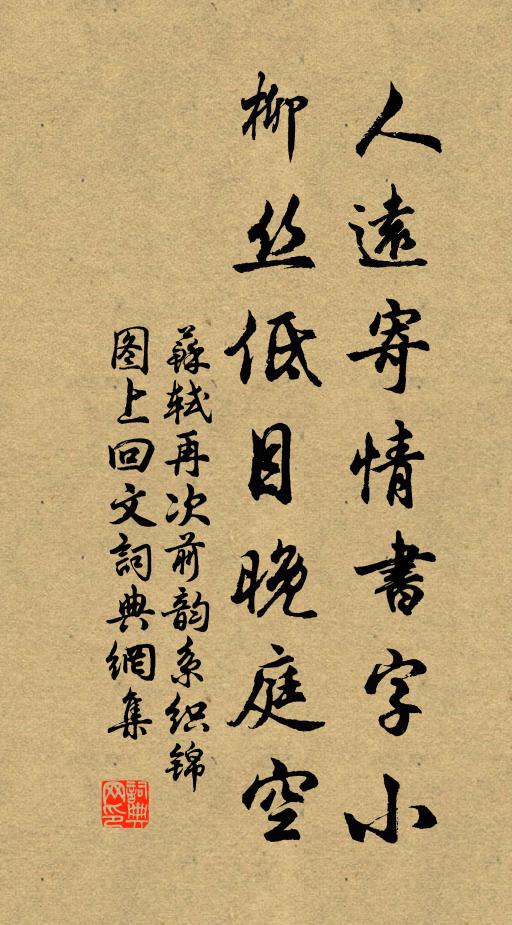 人遠寄情書字小
柳丝低目晚庭空
蘇轼再次前韵系织锦
图上回文詞典網集
詞典
网印